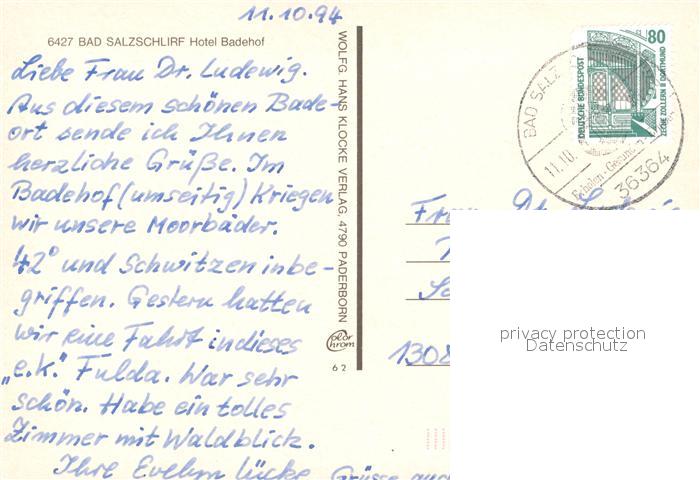 11.10.94
6427 BAD SALZSCHLIRF Hotel Badehof
Liebe Frau Dr. Ludewig.
Aus diesem schönen Bade-
ort sende ich Ihnen
herzliche Grüße. Im
Badehof (umseitig) Kriegen
wir unsere Moorbäder.
42° und Schwitzen inbe-
griffen. Gestern hatten
wir eine Fahrt in dieses
„e.k." Fulda. War sehr
schön. Habe ein tolles
Zimmer mit Waldblick.
Ihre Evelyn Lücke
Grüsse auch
WOLFG. HANS KLOCKE VERLAG, 4790 PADERBORN
color chrom
62
80
DEUTSCHE BUNDESPOST
ZECHE ZOLLERN II DORTMUND
BAD SALZ
11.10.
36364
Frau Dr.
1308
privacy protection
Datenschutz